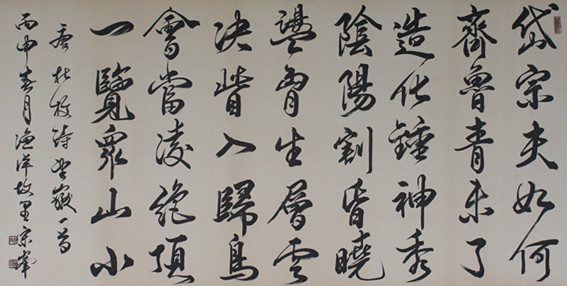 岱宗夫如何
齊魯青未了
造化鍾神秀
陰陽割昏曉
盪胷生層雲
决眥入歸鳥
會當凌絶頂
一覽眾山小
唐杜詩望嶽一首
丙申春月漁洋故里宗峯